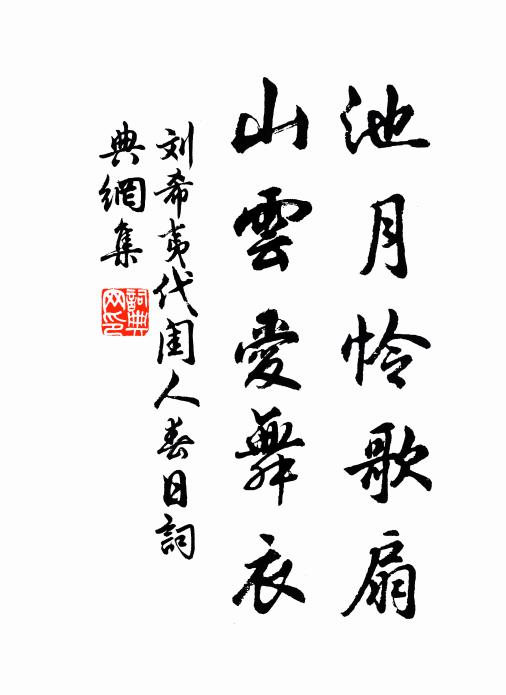 池月怜歌扇
山雲愛舞衣
刘希夷代闺人春日詞
典網集
詞典网印